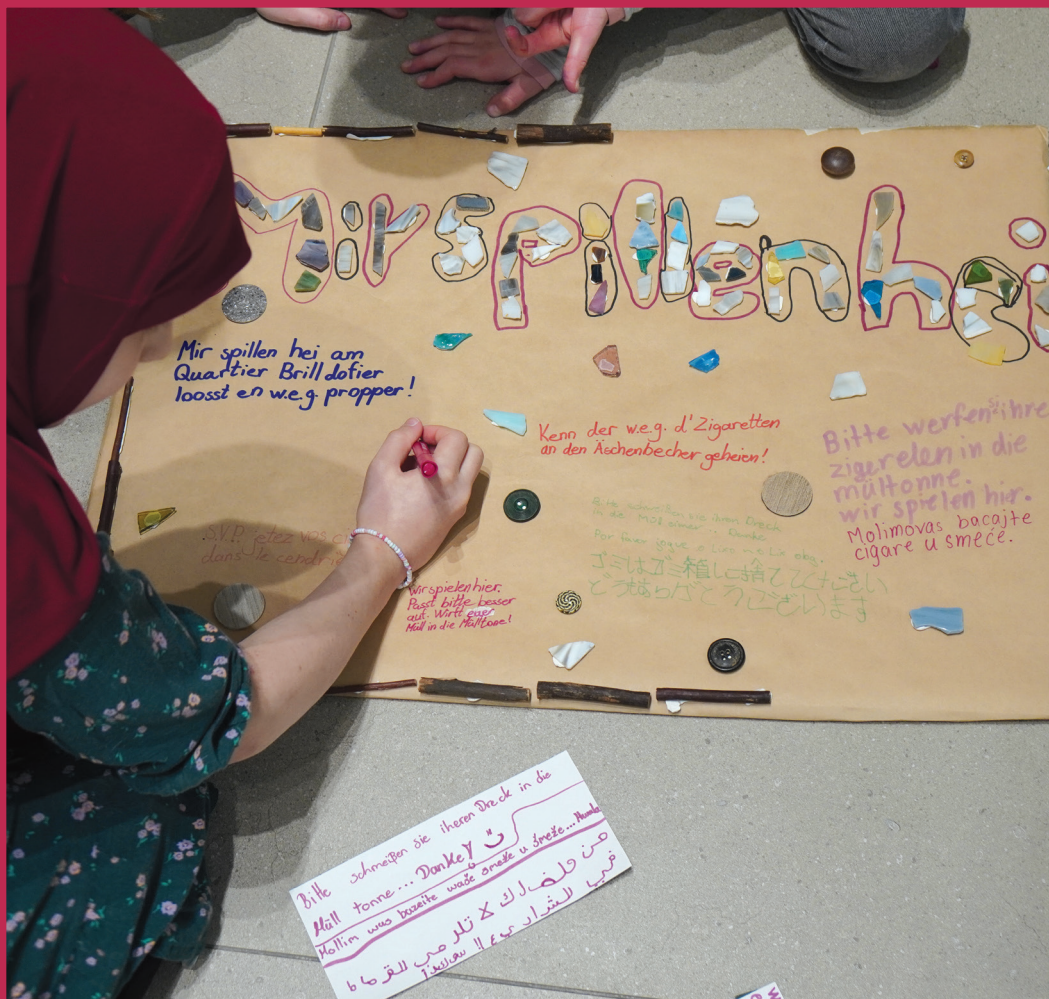 Mir spillen hei
Mir spillen hei am
Quartier Brill dofier
loosst en w.e.g. propper!
Kenn der w.e.g. d'Zigaretten
an den Äschenbecher geheien!
Bitte werfen ihre
zigereten in die
mültonne.
wir spielen hir.
Molimovas bacajte
cigare u smeće.
Bitte schmeißen sie ihren Dreck
in die
Por favor jogue o Lixo
ゴミはゴミ箱に捨ててください
どうもありがとうございます
S.V.P. etez vos
dans le cendrie
Wir spielen hier.
Passt bitte besser
auf. Wirft euer
Müll in die Mülltone!
Bitte schmeißen sie iheren Dreck in die
Müll tonne... Danke
Mollim was bazeite waše smeže u smeže...
من فضلك لا ترمي القرمامة
في الشارع !!